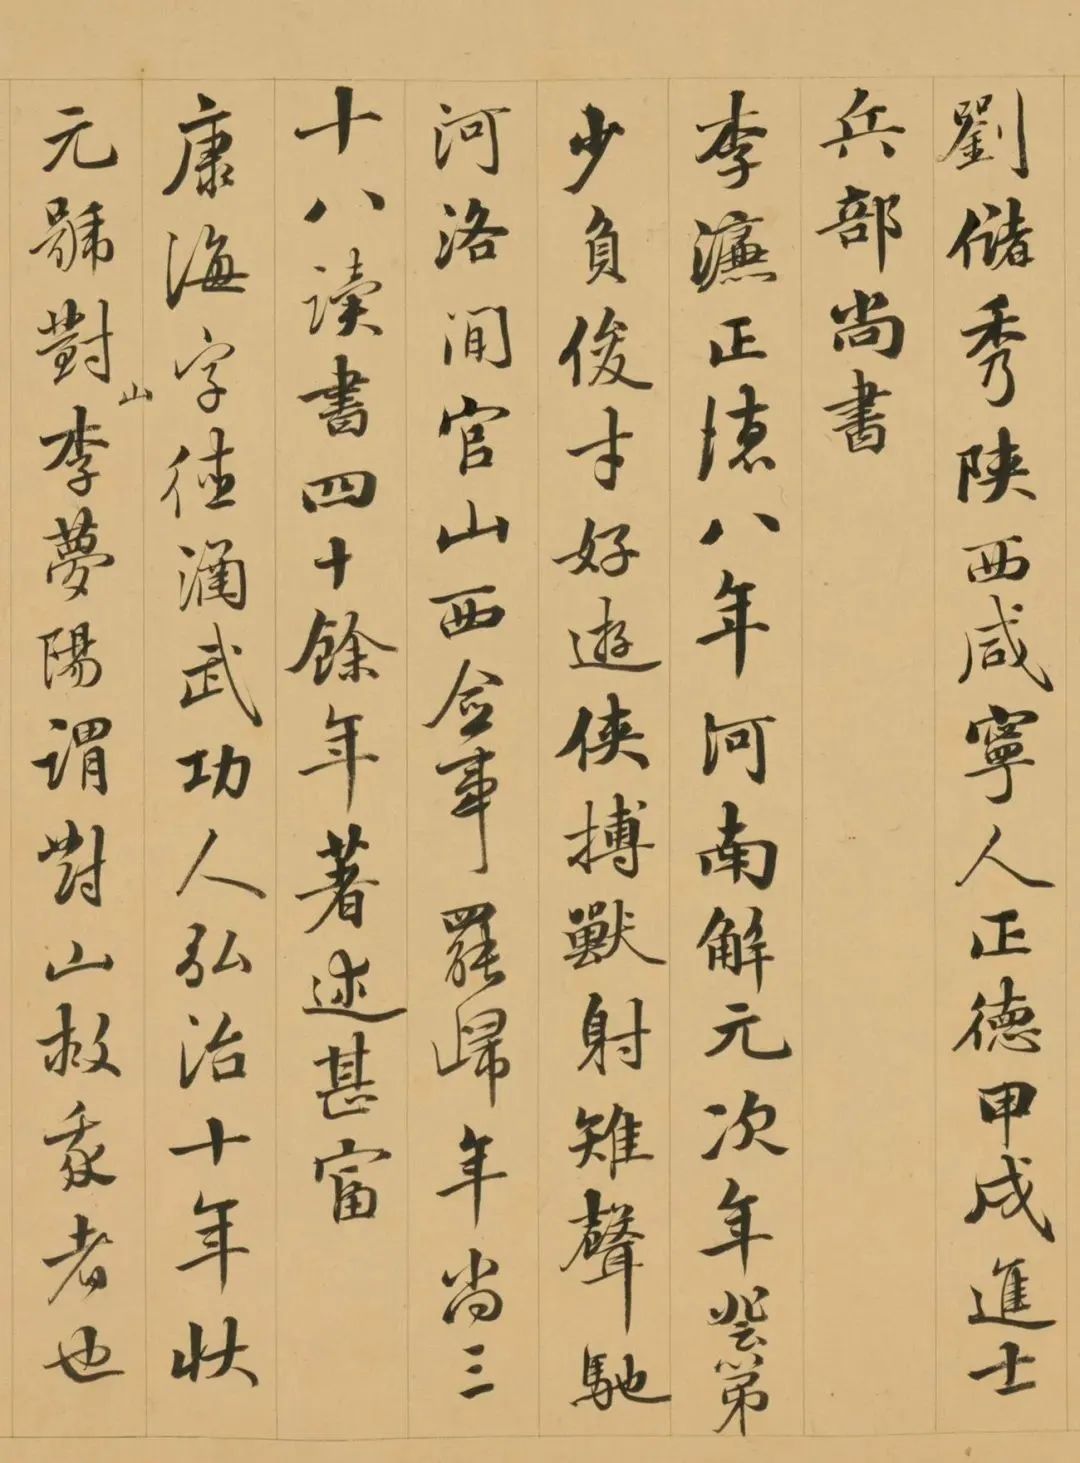 劉儲秀陝西咸寧人正德甲戌進士
兵部尚書
李濂正德八年河南解元次年登第
少負俊才好遊俠搏獸射雉聲馳
河洛間官山西僉事罷歸年尚三
十八讀書四十餘年著述甚富
康海字德涵武功人弘治十年狀
元號對山李夢陽謂對山救我者也